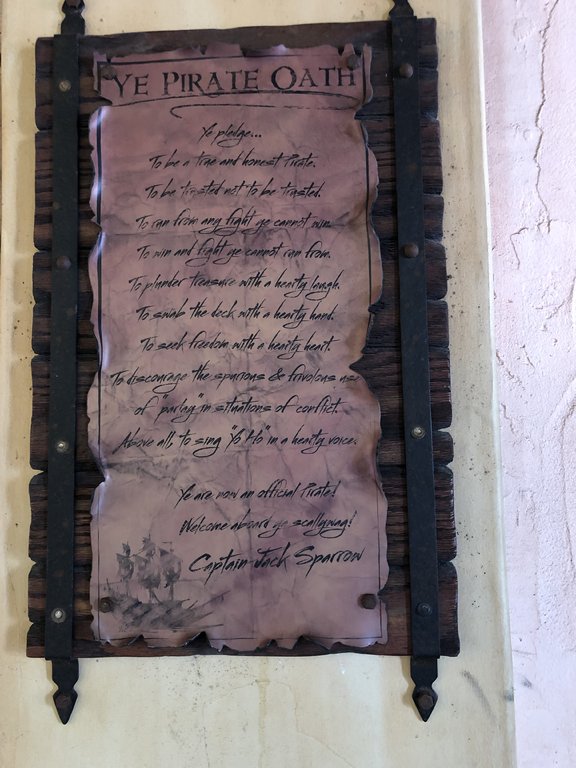 YE PIRATE OATH
Ye pledge...
To be a true and honest Pirate.
To be trusted not to be trusted.
To run from any fight ye cannot win.
To win and fight ye cannot run from.
To plunder treasure with a hearty laugh.
To swab the deck with a hearty hand.
To seek freedom with a hearty heart.
To discourage the spurious & frivolous use
of "parlay" in situations of conflict.
Above all, to sing "Yo Ho" in a hearty voice.
Ye are now an official Pirate!
Welcome aboard ye scallywag!
Captain Jack Sparrow